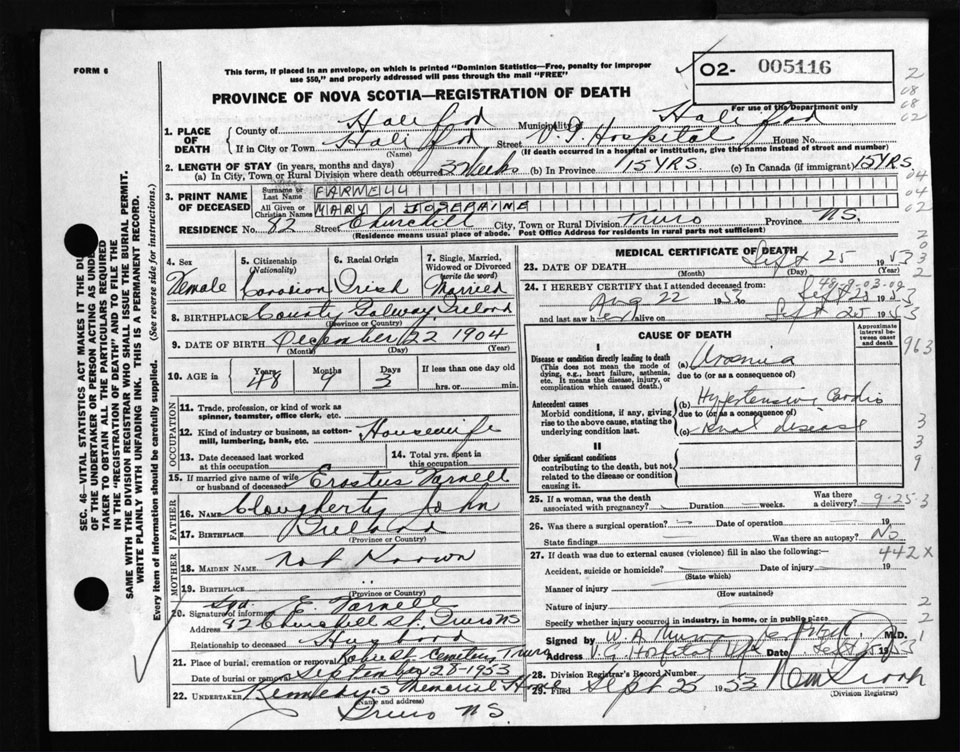 FORM 6
This form, if placed in an envelope, on which is printed "Dominion Statistics—Free, penalty for improper
use $50," and properly addressed will pass through the mail "FREE"
02- 005116
For use of the Department only
PROVINCE OF NOVA SCOTIA—REGISTRATION OF DEATH
1. PLACE OF DEATH
County of Halifax Municipality Halifax
If in City or Town Halifax Street V. G. Hospital House No.
(Name) (If death occurred in a hospital or institution, give the name instead of street and number)
2. LENGTH OF STAY (in years, months and days)
(a) In City, Town or Rural Division where death occurred 3 Weeks (b) In Province 15 YRS (c) In Canada (if immigrant) 15 YRS
3. PRINT NAME OF DECEASED
Surname or Last Name FARNELL
All Given or Christian Names MARY JOSEPHINE
RESIDENCE No. 82 Street Churchill City, Town or Rural Division Truro Province N.S.
(Residence means usual place of abode. Post Office Address for residents in rural parts not sufficient)
4. Sex Female
5. Citizenship (Nationality) Canadian
6. Racial Origin Irish
7. Single, Married, Widowed or Divorced (write the word) Married
8. BIRTHPLACE County Galway Ireland
(Province or Country)
9. DATE OF BIRTH December 22 1904
(Month) (Day) (Year)
10. AGE in Years 48 Months 9 Days 3 If less than one day old
hrs. or min.
OCCUPATION
11. Trade, profession, or kind of work as spinner, teamster, office clerk, etc.
12. Kind of industry or business, as cotton-mill, lumbering, bank, etc. Housewife
13. Date deceased last worked at this occupation
14. Total yrs. spent in this occupation
15. If married give name of wife or husband of deceased Erastus Farnell
FATHER
16. NAME Clougherty John
17. BIRTHPLACE Ireland
(Province or Country)
MOTHER
18. MAIDEN NAME Not Known
19. BIRTHPLACE
(Province or Country)
20. Signature of informant Sgd. E. Farnell
Address 82 Churchill St. Truro NS
Relationship to deceased Husband
21. Place of burial, cremation or removal Robie St. Cemetery Truro
Date of burial or removal September 28-1953
22. UNDERTAKER Kennedy's Memorial Home
(Name and address)
Truro N.S.
MEDICAL CERTIFICATE OF DEATH
23. DATE OF DEATH Sept 25 1953
(Month) (Day) (Year)
24. I HEREBY CERTIFY that I attended deceased from:
48-9-03-02
Aug 22 1953 Sept 25 1953
and last saw her alive on Sept 25 1953
CAUSE OF DEATH
Approximate interval between onset and death
I
Disease or condition directly leading to death
(This does not mean the mode of dying, e.g., heart failure, asthenia, etc. It means the disease, injury, or complication which caused death.)
(a) Uraemia
due to (or as a consequence of)
Antecedent causes
Morbid conditions, if any, giving rise to the above cause, stating the underlying condition last.
(b) Hypertensive Cardio
due to (or as a consequence of)
(c) renal disease
II
Other significant conditions
contributing to the death, but not related to the disease or condition causing it.
25. If a woman, was the death associated with pregnancy? Duration weeks. Was there a delivery? 9-25-3
26. Was there a surgical operation? Date of operation 19
State findings Was there an autopsy? No
442 X
27. If death was due to external causes (violence) fill in also the following:
Accident, suicide or homicide? Date of injury 19
(State which)
Manner of injury
(How sustained)
Nature of injury
Specify whether injury occurred in industry, in home, or in public place
Signed by W. A. M.D.
Address V. G. Hospital Date Sept 25 1953
28. Division Registrar's Record Number
29. Filed Sept 25 1953
(Division Registrar)
SEC. 46—VITAL STATISTICS ACT MAKES IT THE DU
OF THE UNDERTAKER OR PERSON ACTING AS UNDE
TAKER TO OBTAIN ALL THE PARTICULARS REQUIRED
IN THE "REGISTRATION OF DEATH" AND TO FILE THE
SAME WITH THE DIVISION REGISTRAR WHO SHALL ISSUE THE BURIAL PERMIT.
WRITE PLAINLY WITH UNFADING INK. THIS IS A PERMANENT RECORD.
Every item of information should be carefully supplied. (See reverse side for instructions.)